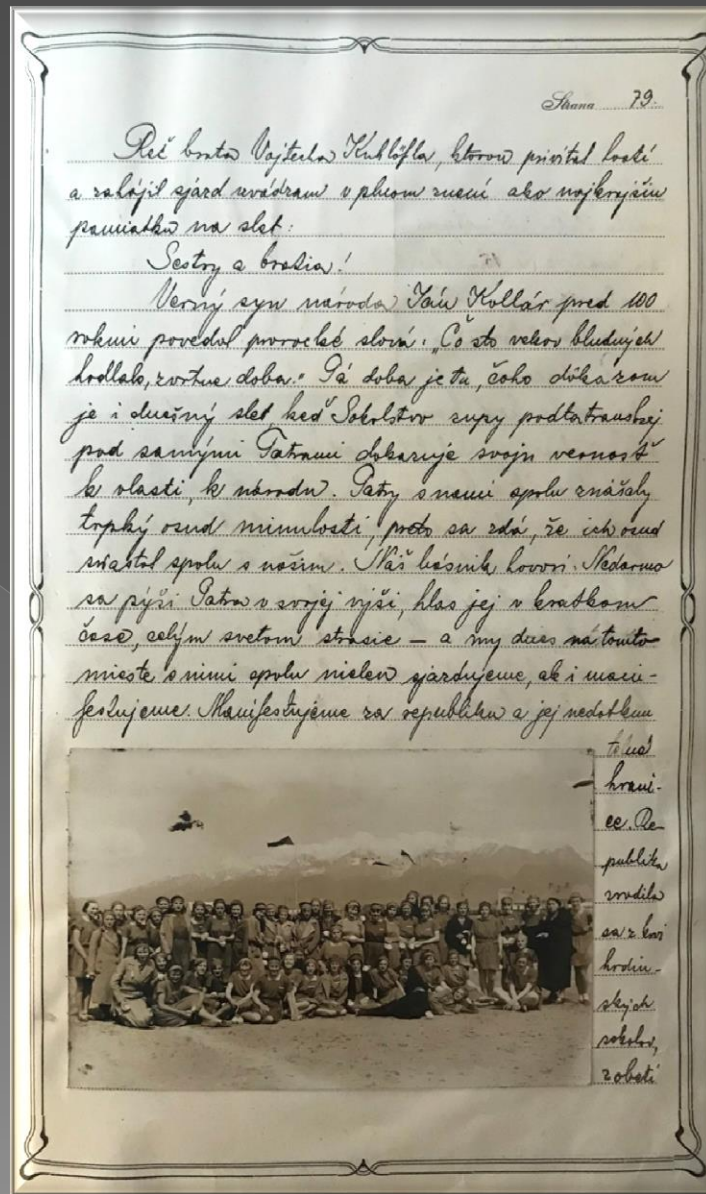 Strana 79.
Reč brata Vojtecha Kuhlöfla, ktorou privítal hostí
a zahájil sjazd uvádzam v plnom znení ako najkrajšiu
pamiatku na slet:
Sestry a bratia!
Verný syn národa Ján Kollár pred 100
rokmi povedal prorocké slová: „Čo sto vekov bludných
hodlalo, zvrtne doba." Tá doba je tu, čoho dôkazom
je i dnešný slet, keď Sokolstvo župy podtatranskej
pod samými Tatrami dokazuje svoju vernosť
k vlasti, k národu. Tatry s nami spolu znášaly
trpký osud minulosti, preto sa zdá, že ich osud
srastol spolu s našim. Náš básnik hovorí: Nedarmo
sa pýši Tatra v svojej výši, hlas jej v krátkom
čase, celým svetom strasie – a my dnes na tomto
mieste s nimi spolu nielen sjazdujeme, ale i mani-
festujeme. Manifestujeme za republiku a jej nedotknu
teľné
hrani-
ce. Re-
publika
zrodila
sa z krvi
hrdin-
ských
sokolov,
z obetí